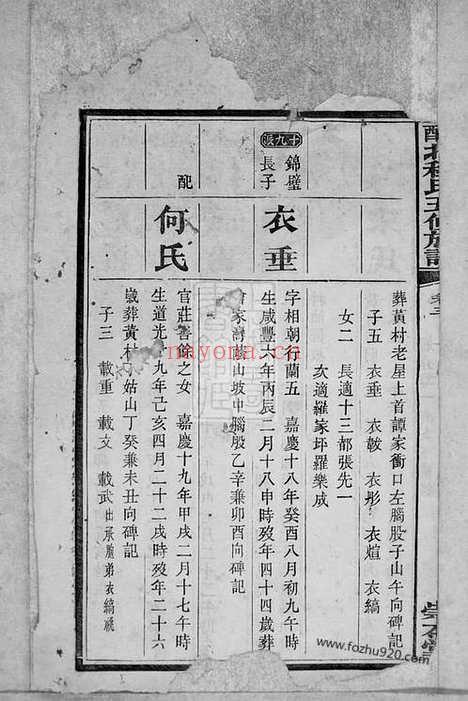 氏五修族譜
卷三
葬黃村老屋上首譚家衝口左腦股子山午向碑記
子五 衣垂 衣皷 衣彤 衣煊 衣縞
女二 長適十三都張先一
次適羅家坪羅樂成
十九派
錦璧長子
衣垂
字相朝行蘭五 嘉慶十八年癸酉八月初九午時
生咸豐六年丙辰二月十八申時歿年四十四歲葬
家灣 山坡中腦股乙辛兼卯酉向碑記
配
何氏
官莊善餘之女 嘉慶十九年甲戌二月十七午時
生道光 九年己亥四月二十二戌時歿年二十六
歲葬黃村 姑山丁癸兼未丑向碑記
子三 載重 載文 載武出承胞弟衣縞祧
nayona.cn
www.fozhu920.com